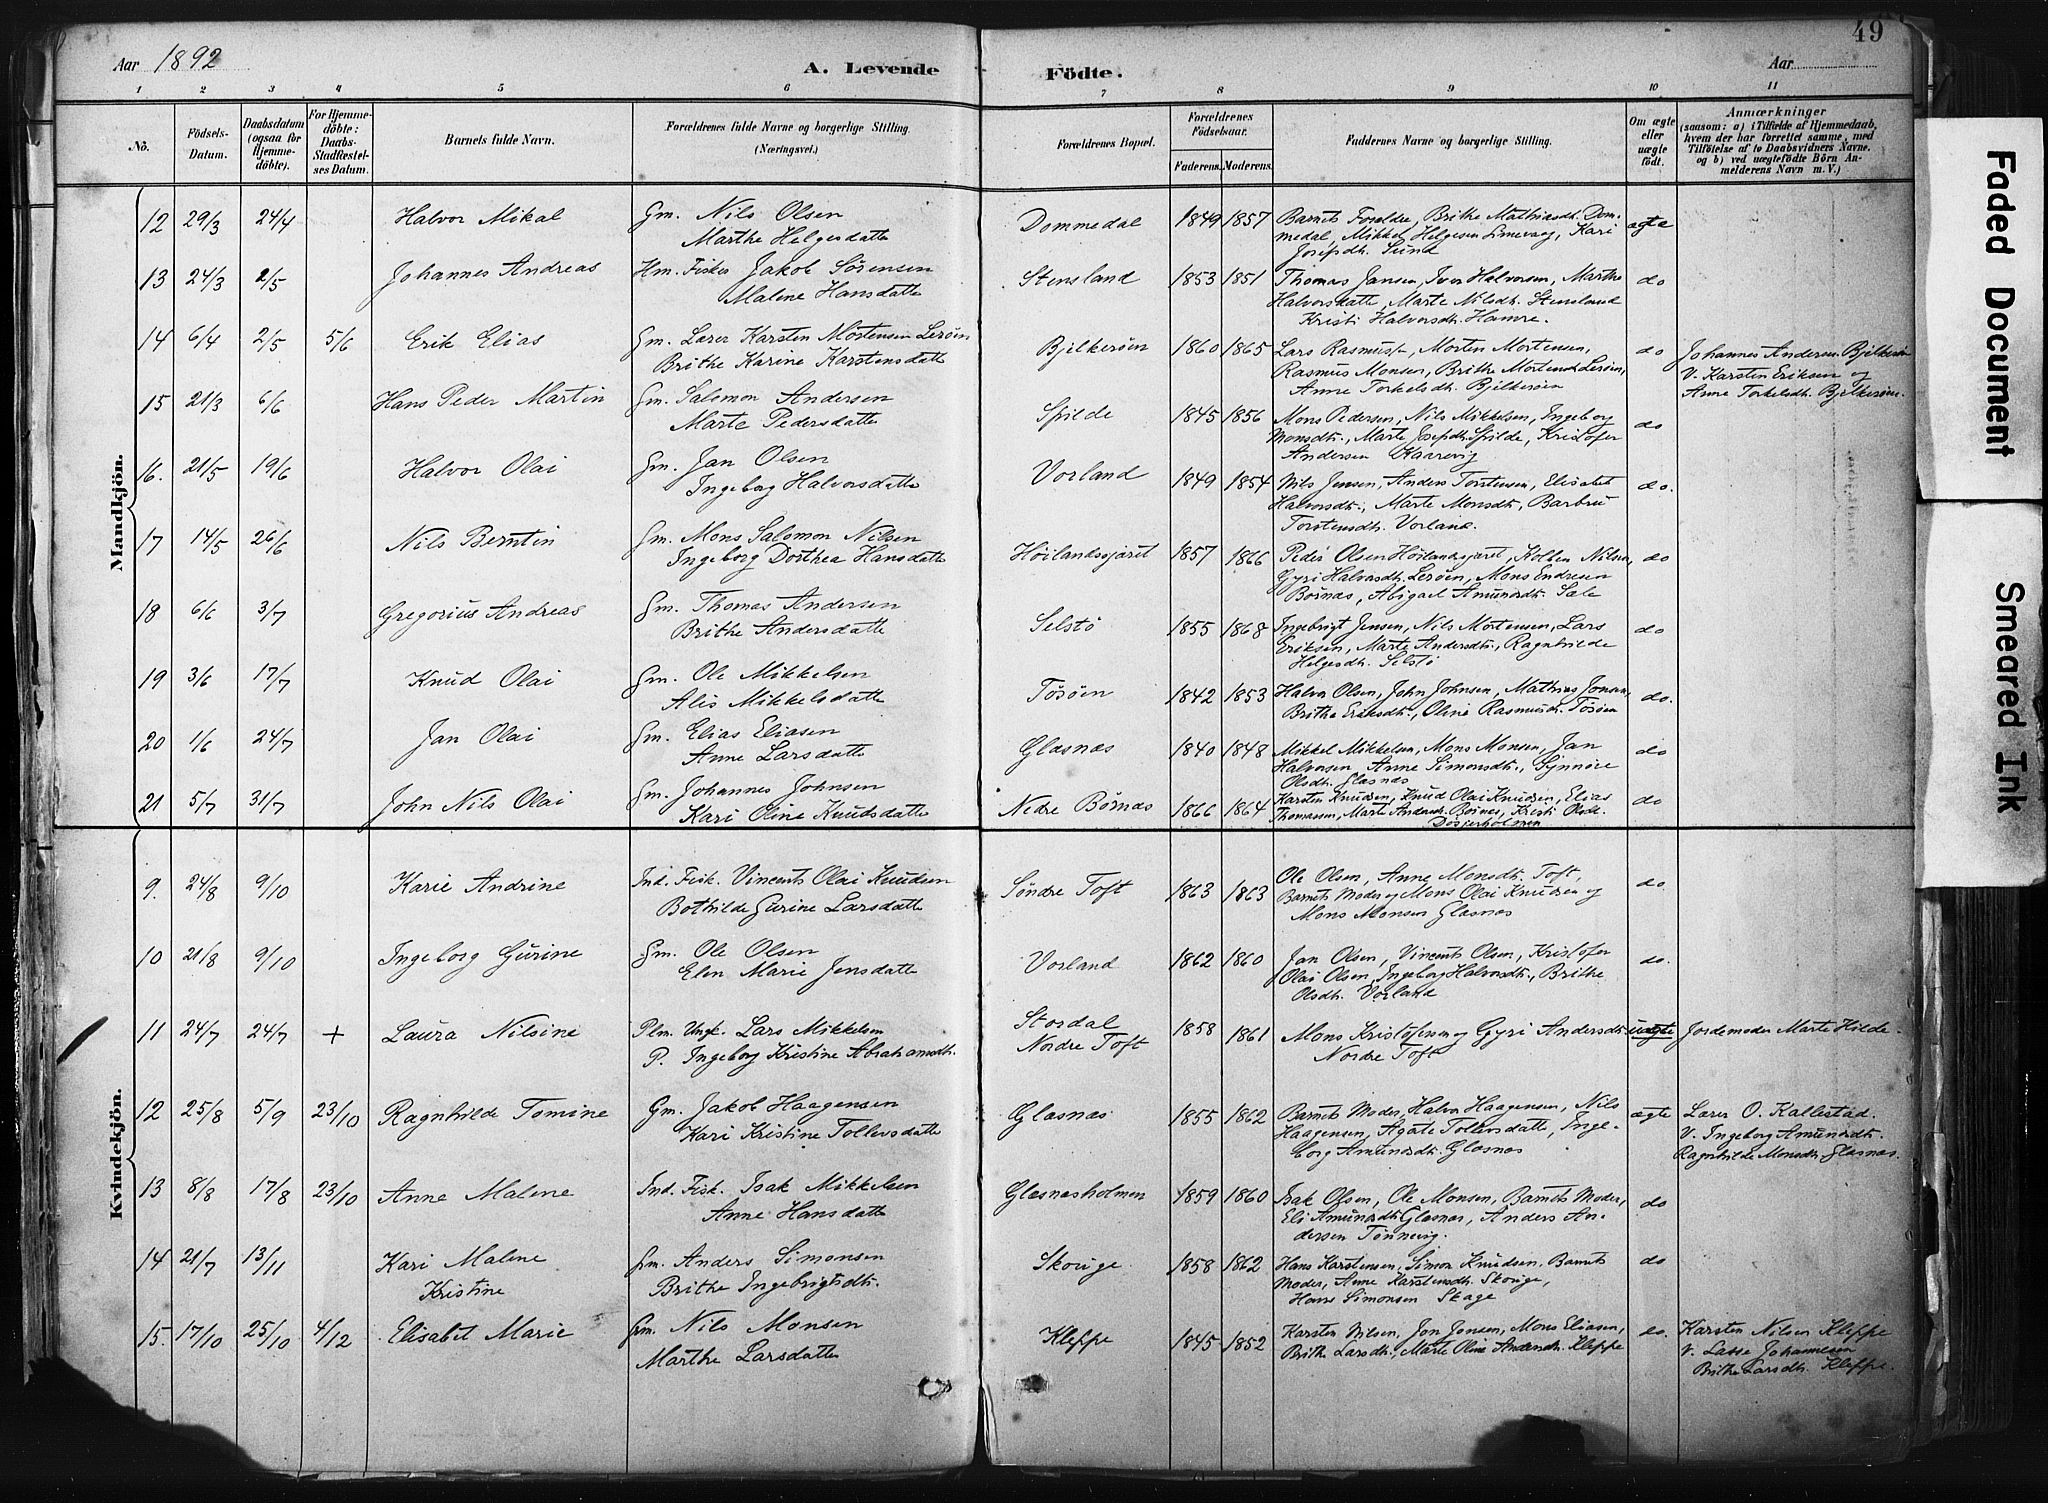 49
Aar 1892
A. Levende Födte.
Aar
1 2 3 4 5 6 7 8 9 10 11
No.
Födsels-Datum.
Daabsdatum (ogsaa for Hjemme-döbte).
For Hjemme-döbte: Daabs-Stadfæstel-ses Datum.
Barnets fulde Navn.
Forældrenes fulde Navne og borgerlige Stilling. (Næringsvei.)
Forældrenes Bopæl.
Forældrenes Födselsaar.
Faderens. Moderens.
Faddernes Navne og borgerlige Stilling.
Om ægte eller uægte födt.
Anmærkninger
(saasom: a) i Tilfælde af Hjemmedaab,
hvem der har forrettet samme, med
Tilföielse af to Daabsvidners Navne.
og b) ved uægtefödte Börn An-
melderens Navn m. V.)
Mandkjön.
12 29/3 24/4 Halvor Mikal Gm. Nils Olsen Dommedal 1849 1857 Barnets Foreldre, Brithe Mathiasdt. Dom- ægte
Marthe Helgesdatte medal, Mikkel Helgesen Limevaag, Kari
Josepdt. Sund
13 24/3 2/5 Johannes Andreas Hm. Fisker Jakob Sørensen Stensland 1853 1851 Thomas Jansen, Iver Halvorsen, Marthe do
Malene Hansdatte Halvorsdatte, Marte Nilsdt. Stensland
Kristi Halvorsdt. Hamre.
14 6/4 2/5 5/6 Erik Elias Gm. Lærer Karsten Mortensen Lerøen Bjelkerøen 1860 1865 Lars Rasmuss., Morten Mortensen, do Johannes Andersen Bjelkerøen
Brithe Karine Karstensdatte Rasmus Monsen, Brithe Mortensdt. Lerøen, V. Karsten Eriksen og
Anne Torkelsdt. Bjelkerøen Anne Torkelsdt. Bjelkerøen.
15 21/3 6/6 Hans Peder Martin Gm. Salomon Andersen Spilde 1845 1856 Mons Pedersen, Nils Mikkelsen, Ingeborg do
Marte Pedersdatte Monsdt., Marte Josepdt. Spilde, Kristofer
Andersen Kaarevig
16. 21/5 19/6 Halvor Olai Gm. Jan Olsen Vorland 1849 1854 Nils Jensen, Anders Torstensen, Elisabet do.
Ingeborg Halvorsdatte Halvorsdt., Marte Monsdt., Barbru
Torstensdt. Vorland.
17 14/5 26/6 Nils Berntin Gm. Mons Salomon Nilsen Höilandsgjæret 1857 1866 Peder Olsen Höilandsgjæret, Kolben Nilsen, do
Ingeborg Dorthea Hansdatte Gyri Halvorsdt. Lerøen, Mons Endresen
Børnæs, Abigael Amundsdt. Sæle
18 6/6 3/7 Gregorius Andreas Gm. Thomas Andersen Selstø 1855 1868 Ingebrigt Jensen, Nils Mortensen, Lars do
Brithe Andersdatte Eriksen, Marte Andersdt., Ragnhilde
Helgesdt. Selstø
19 3/6 17/7 Knud Olai Gm. Ole Mikkelsen Tøsøen 1842 1853 Halvor Olsen, John Johnsen, Mathias Jonsen, do.
Alis Mikkelsdatte Brithe Eriksdt., Oline Rasmusdt. Tøsøen
20 1/6 24/7 Jan Olai Gm. Elias Eliasen Glæsnæs 1840 1848 Mikkel Mikkelsen, Mons Monsen, Jan do
Anne Larsdatte Halvorsen, Anne Simonsdt., Synnøve
Olsdt. Glæsnæs
21 5/7 31/7 John Nils Olai Gm. Johannes Johnsen Nedre Børnæs 1866 1864 Karsten Knudsen, Knud Olai Knudsen, Elias do
Kari Oline Knudsdatte Thomasen, Marte Andersdt. Børnes, Kristi Olsdt.
Kvindekjön.
9. 24/8 9/10 Karie Andrine Ind. Fisk. Vincents Olai Knudsen Søndre Toft 1863 1863 Ole Olsen, Anne Monsdt. Toft, do.
Bothilde Gurine Larsdatte Barnets Moder og Mons Olai Knudsen og
Mons Monsen Glæsnæs
10 21/8 9/10 Ingeborg Gurine Gm. Ole Olsen Vorland 1862 1860 Jan Olsen, Vincents Olsen, Kristofer do.
Elen Marie Jensdatte Olai Olsen, Ingeborg Halvorsdt., Brithe
Olsdt. Vorland
11 24/7 24/7 + Laura Nilsine Plm. Ungk. Lars Mikkelsen Stordal 1858 1861 Mons Kristofersen og Gyri Andersdt. uægte Jordemoder Marte Hilde.
P. Ingeborg Kristine Abrahamsdt. Nordre Toft Nordre Toft
12 25/8 5/9 23/10 Ragnhilde Tomine Gm. Jakob Haagensen Glæsnæs 1855 1862 Barnets Moder, Halvor Haagensen, Nils ægte Lærer O. Kallestad.
Kari Kristine Tollevsdatte Haagensen, Agate Tollevsdatte, Inge- V. Ingeborg Amundsdt.
borg Amundsdt. Glæsnæs Ragnhilde Monsdt. Glæsnæs.
13 8/8 17/8 23/10 Anne Malene Ind. Fisk. Isak Mikkelsen Glæsnæsholmen 1859 1860 Isak Olsen, Ole Monsen, Barnets Moder, do
Anne Hansdatte Eli Amundsdt. Glæsnæs, Anders An-
dersen Tønnevig.
14 21/7 13/11 Kari Malene Gm. Anders Simonsen Skovige 1858 1862 Hans Karstensen, Simon Knudsen, Barnets do
Kristine Brithe Ingebrigtsdt. Moder, Anne Karstensdt. Skovige,
Hans Simonsen Skage
15. 17/10 25/10 4/12 Elisabet Marie Gm. Nils Monsen Kleppe 1845 1852 Karsten Nilsen, Jon Jonsen, Mons Eliasen, do. Karsten Nilsen Kleppe
Marthe Larsdatte Brithe Larsdt., Marte Oline Andersdt. Kleppe V. Lasse Johannesen
Brithe Larsdt. Kleppe.
Faded Document
Smeared Ink